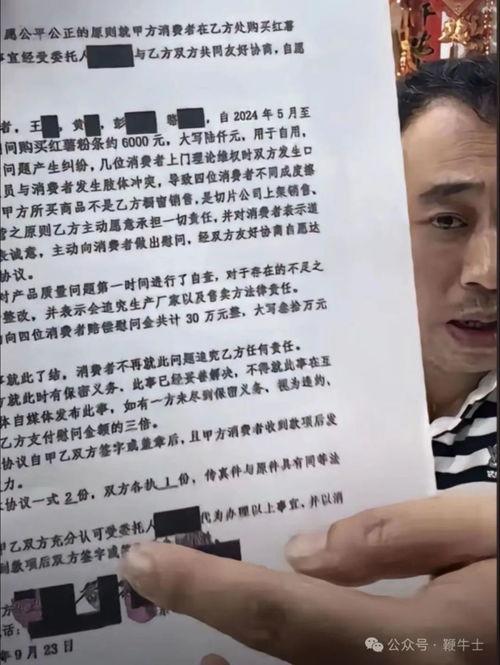 愿公平公正的原则就甲方消费者在乙方处购买红薯
事宜经受委托人 与乙方双方共同友好协商,自愿
者,王 ,黄 ,彭 自2024年5月至
间购买红薯粉条约6000元,大写陆仟元,用于自用,
问题产生纠纷,几位消费者上门理论维权时双方发生口
员与消费者发生肢体冲突,导致四位消费者不同成度擦
甲方所买商品不是乙方橱窗销售,是切片公司上架销售、
营之原则乙方主动愿意承担一切责任,并对消费者表示道
表诚意,主动向消费者做出慰问,经双方友好协商自愿达
协议。
对产品质量问题第一时间进行了自查,对于存在的不足之
整改,并表示会追究生产厂家以及售卖方法律责任。
向四位消费者赔偿慰问金共计30万元整,大写叁拾万元
事就此了结,消费者不再就此问题追究乙方任何责任。
方就此时有保密义务、此事已经妥善解决,不得就此事在互
体自媒体发布此事,如有一方未尽到保密义务、视为违约、
乙方支付慰问金额的三倍。
协议自甲乙双方签字或盖章后,且甲方消费者收到款项后发
力。
本协议一式2份,双方各执1份,传真件与原件具有同等法
甲乙双方充分认可受委托人 代为办理以上事宜、并以消
到款项后双方签字或
方
话:
年9月23日
公众号·鞭牛士